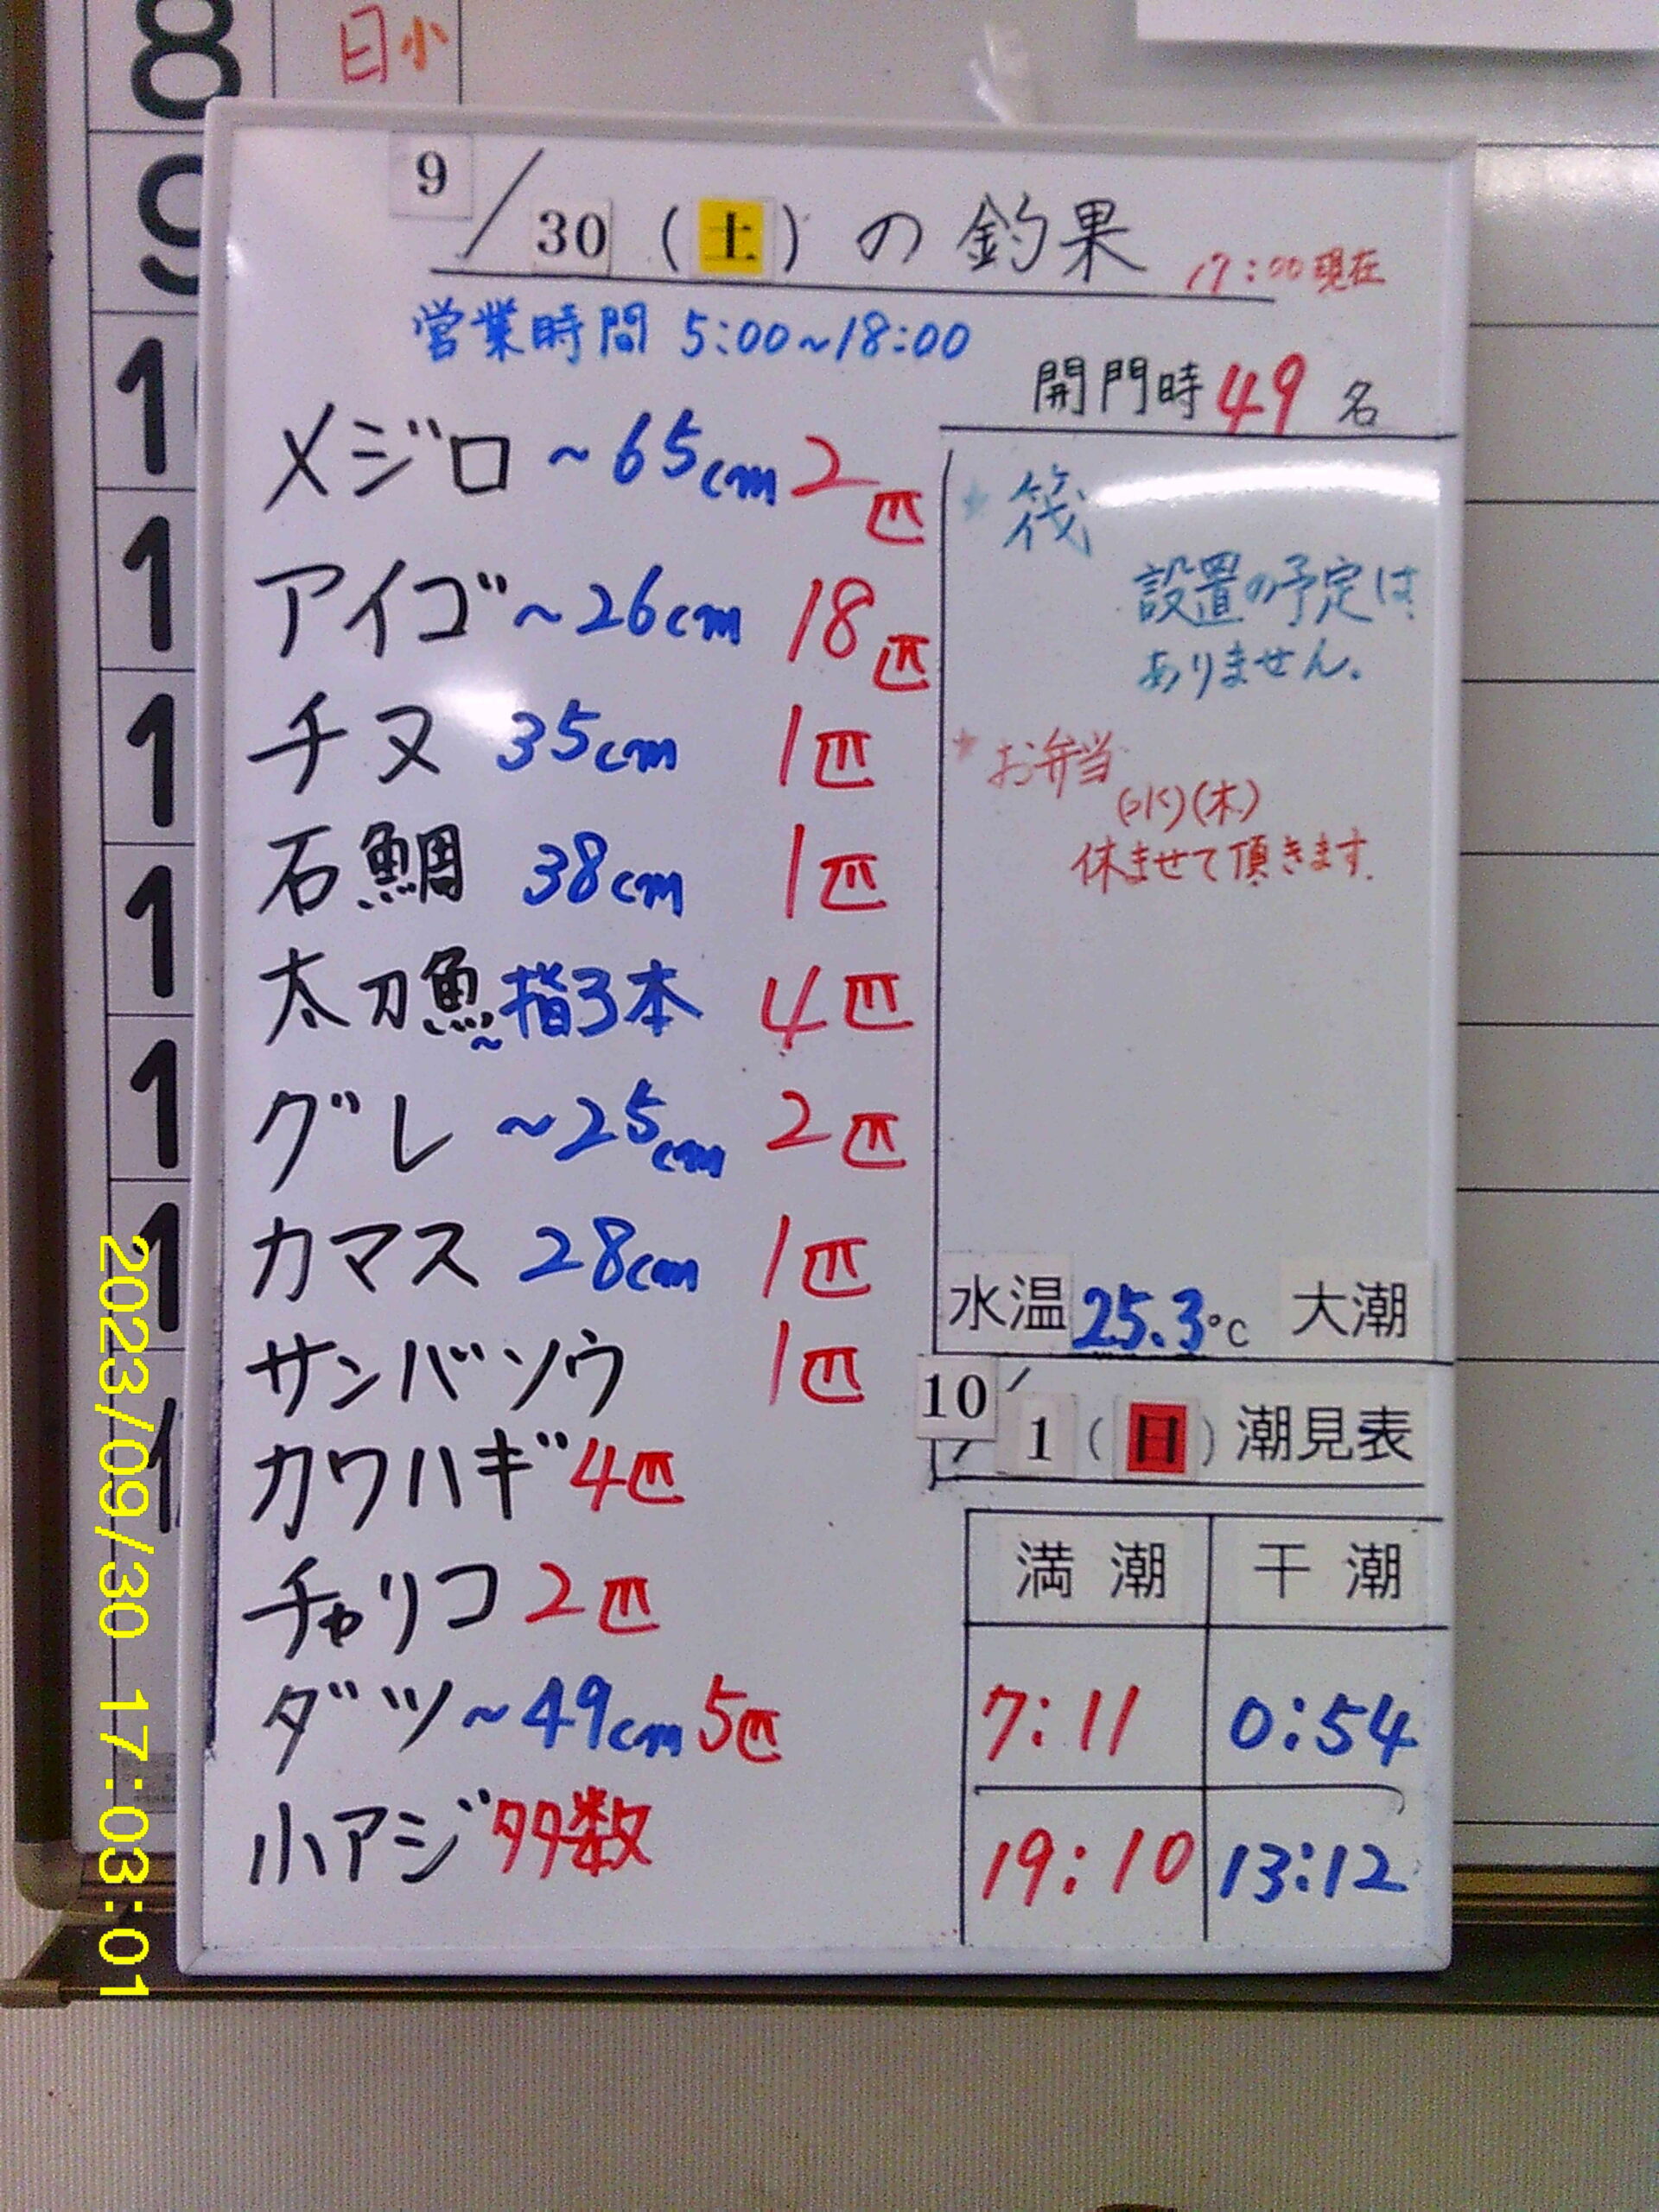 8 日 小
9
9/30(土)の釣果 17:00現在
営業時間 5:00~18:00
開門時 49 名
メジロ ~65cm 2匹
アイゴ ~26cm 18匹
チヌ 35cm 1匹
石鯛 38cm 1匹
太刀魚 ~指3本 4匹
グレ ~25cm 2匹
カマス 28cm 1匹
サンバソウ 1匹
カワハギ 4匹
チャリコ 2匹
ダツ ~49cm 5匹
小アジ 多数
* 筏
設置の予定は
ありません。
* お弁当
(水)(木)
休ませて頂きます.
水温 25.3℃ 大潮
10/1(日)潮見表
満潮 干潮
7:11 0:54
19:10 13:12
2023/09/30 17:03:01